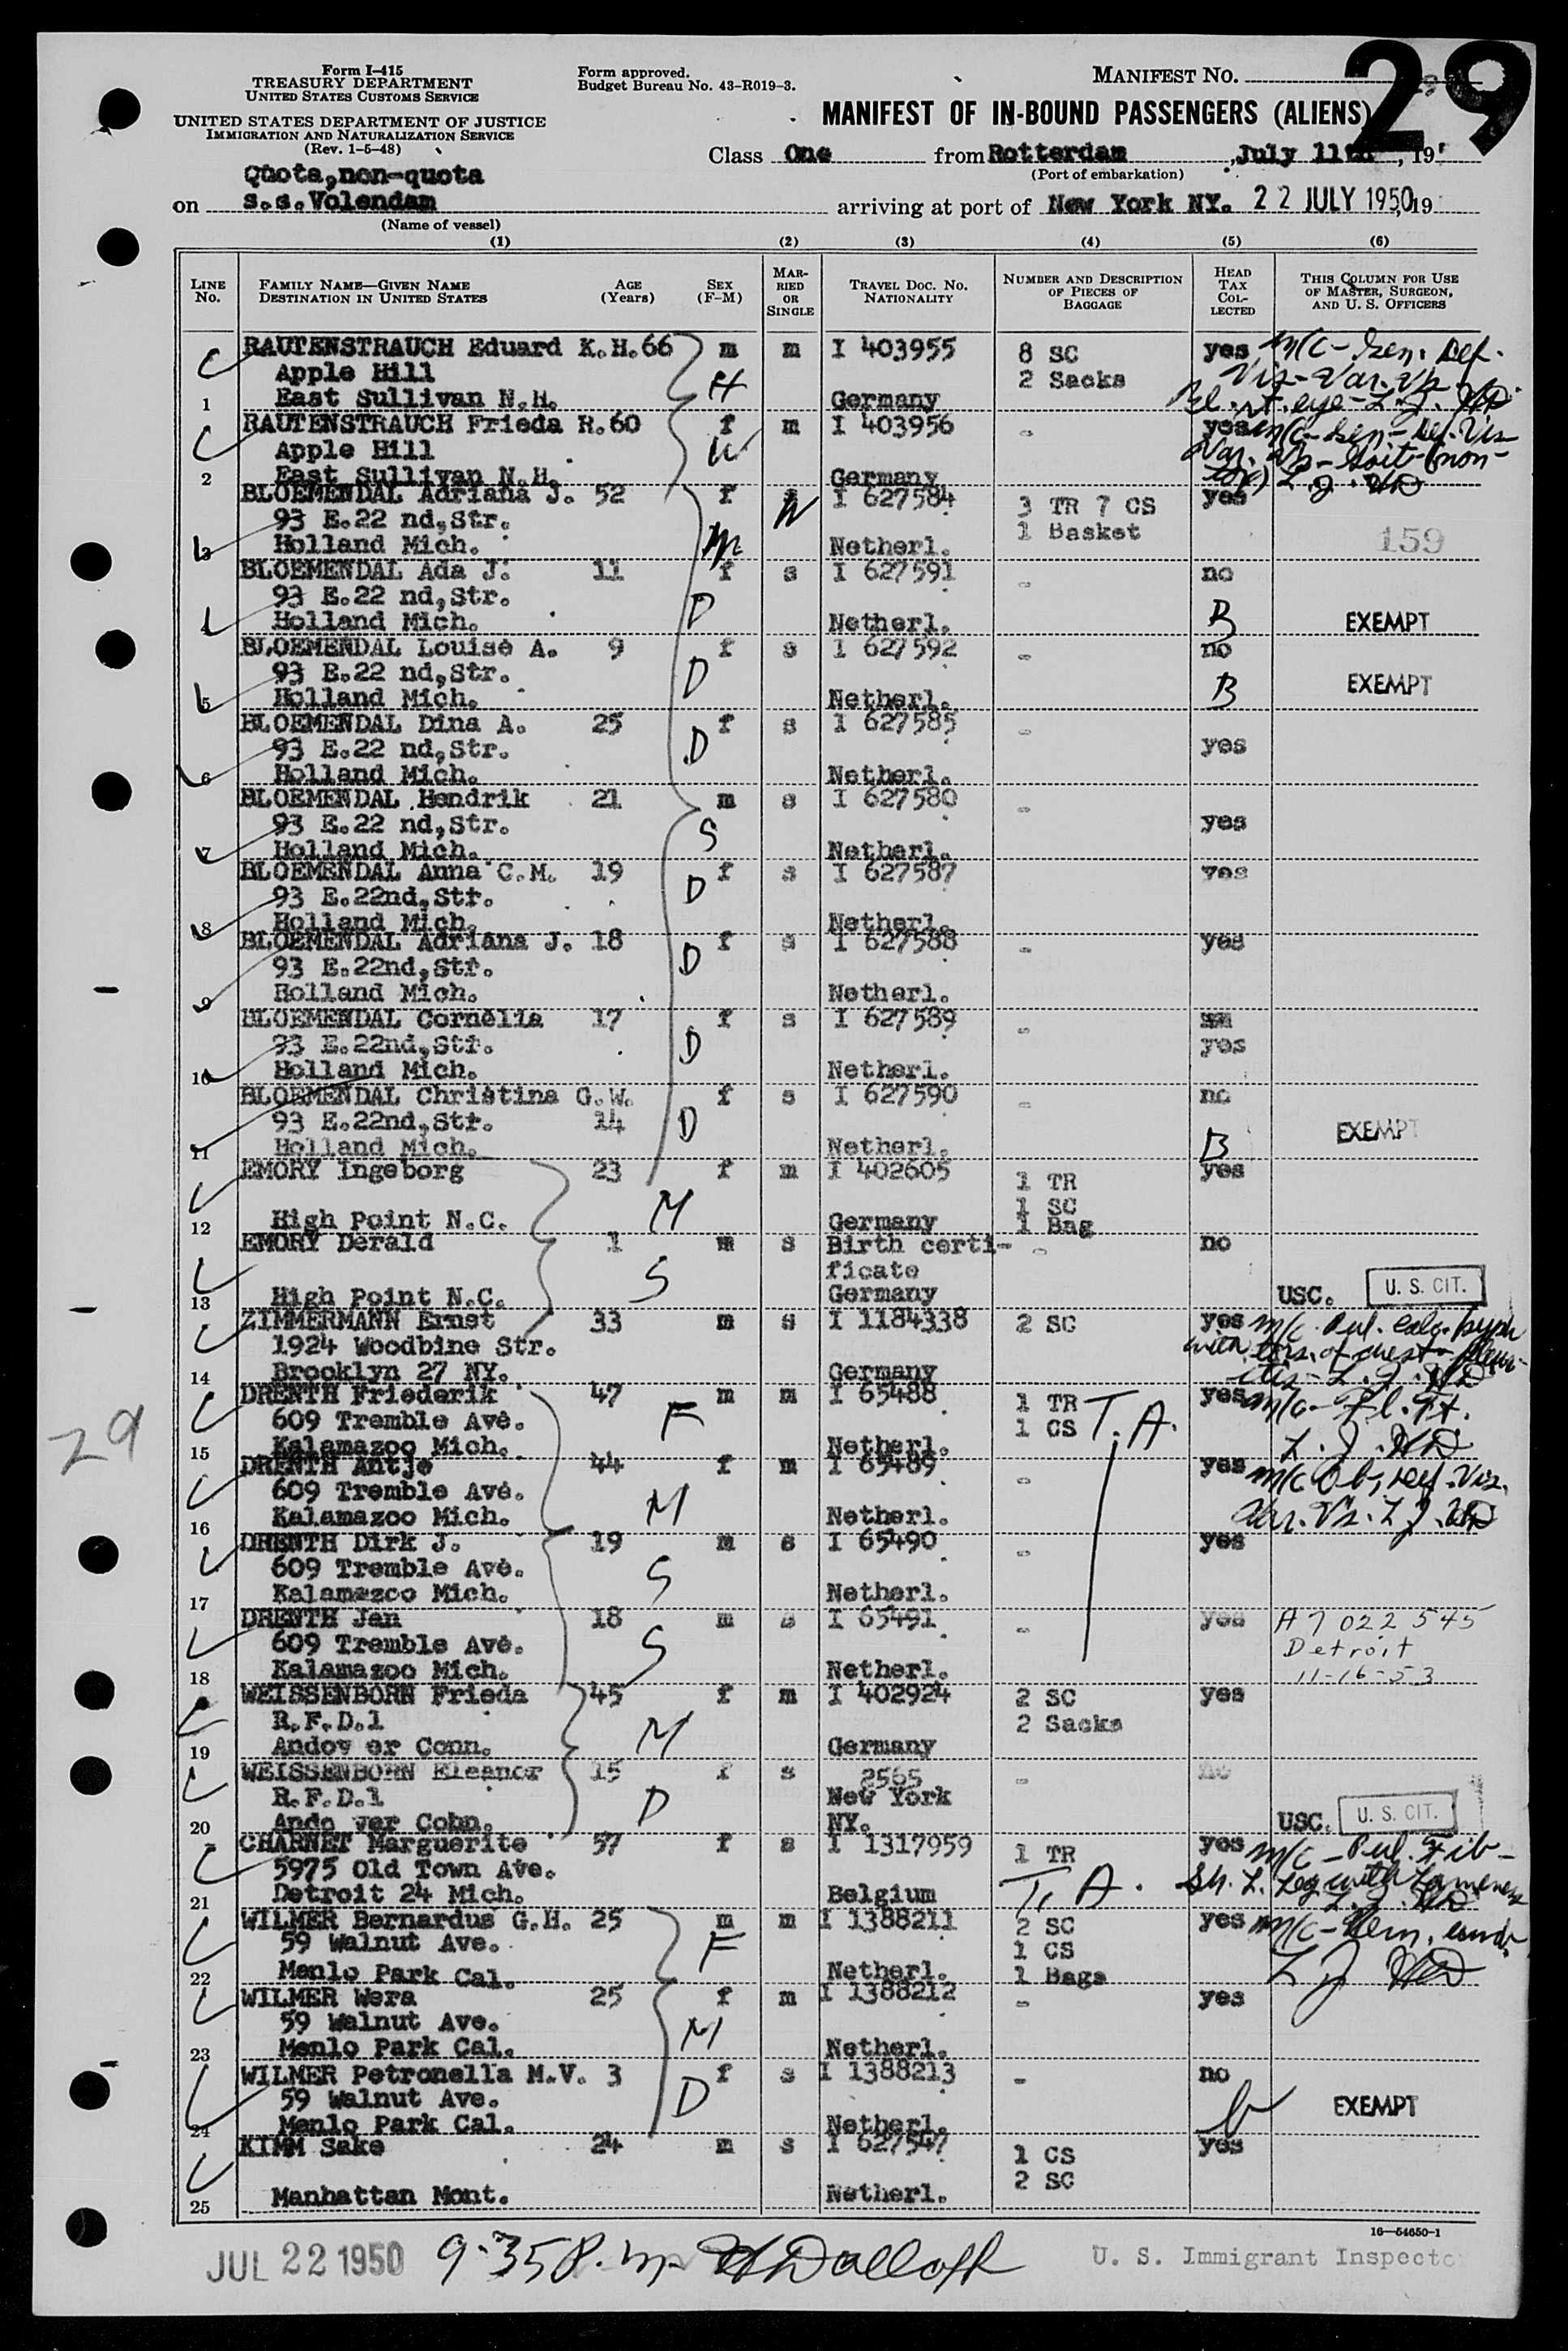 Form I-415
TREASURY DEPARTMENT
UNITED STATES CUSTOMS SERVICE
UNITED STATES DEPARTMENT OF JUSTICE
IMMIGRATION AND NATURALIZATION SERVICE
(Rev. 1-5-48)
Form approved.
Budget Bureau No. 43-R019-3.
MANIFEST NO.
29
MANIFEST OF IN-BOUND PASSENGERS (ALIENS)
Class One from Rotterdam, July 11th, 19
(Port of embarkation)
Quota,non-quota
on s.s.Volendam arriving at port of New York NY. 22 JULY 1950, 19
(Name of vessel)
(1) (2) (3) (4) (5) (6)
LINE No. FAMILY NAME—GIVEN NAME DESTINATION IN UNITED STATES AGE (Years) SEX (F-M) MARRIED OR SINGLE TRAVEL DOC. NO. NATIONALITY NUMBER AND DESCRIPTION OF PIECES OF BAGGAGE HEAD TAX COLLECTED THIS COLUMN FOR USE OF MASTER, SURGEON, AND U. S. OFFICERS
RAUTENSTRAUCH Eduard K.H. 66 m m I 403955 8 SC yes m/c - Sen. Def.
Apple Hill H 2 Sacks Vis - Var. Vs
1 East Sullivan N.H. Germany Bl. rt. eye - L.J. HD
RAUTENSTRAUCH Frieda R. 60 f m I 403956 - yes m/c - Sen - Def. Vis
Apple Hill W Var. Vs - Goit (non-
2 East Sullivan N.H. Germany tox) L.J. HD
BLOEMENDAL Adriana J. 52 f W I 627584 3 TR 7 CS yes
93 E.22 nd,Str. 1 Basket
3 Holland Mich. M Netherl. 159
BLOEMENDAL Ada J. 11 f s I 627591 - no
93 E.22 nd,Str. D
4 Holland Mich. Netherl. B EXEMPT
BLOEMENDAL Louise A. 9 f s I 627592 - no
93 E.22 nd,Str. D
5 Holland Mich. Netherl. B EXEMPT
BLOEMENDAL Dina A. 25 f s I 627585 -
93 E.22 nd,Str. D yes
6 Holland Mich. Netherl.
BLOEMENDAL Hendrik 21 m s I 627580 -
93 E.22 nd,Str. S yes
7 Holland Mich. Netherl.
BLOEMENDAL Anna C.M. 19 f s I 627587 yes
93 E.22nd,Str. D
8 Holland Mich. Netherl.
BLOEMENDAL Adriana J. 18 f s I 627588 - yes
93 E.22nd,Str. D
9 Holland Mich. Netherl.
BLOEMENDAL Cornelia 17 f s I 627589 -
93 E.22nd,Str. D yes
10 Holland Mich. Netherl.
BLOEMENDAL Christina G.W. f s I 627590 - no
93 E.22nd,Str. 14 D EXEMPT
11 Holland Mich. Netherl. B
EMORY Ingeborg 23 f m I 402605 1 TR yes
M 1 SC
12 High Point N.C. Germany 1 Bag
EMORY Derald 1 m s Birth certi- - no
S ficate
13 High Point N.C. Germany USC. U. S. CIT.
ZIMMERMANN Ernst 33 m s I 1184338 2 SC yes m/c Pul.
1924 Woodbine Str. of chest
14 Brooklyn 27 NY. Germany L.J. HD
DRENTH Friederik 47 m m I 65488 1 TR T.A. yes m/c - Fl. Ft.
609 Tremble Ave. F 1 CS
15 Kalamazoo Mich. Netherl. L.J. HD
DRENTH Antje 44 f m I 65489 - yes m/c Ob, Def. Vis.
609 Tremble Ave. M
16 Kalamazoo Mich. Netherl. Var. Vs. L.J. HD
DRENTH Dirk J. 19 m s I 65490 - yes
609 Tremble Ave. S
17 Kalamazoo Mich. Netherl.
DRENTH Jan 18 m s I 65491 - yes A7 022 545
609 Tremble Ave. S Detroit
18 Kalamazoo Mich. Netherl. 11-16-53
WEISSENBORN Frieda 45 f m I 402924 2 SC yes
R.F.D.1 M 2 Sacks
19 Andov er Conn. Germany
WEISSENBORN Eleanor 15 f s 2565 - no
R.F.D.1 D New York
20 Ando ver Conn. NY. USC. U. S. CIT.
CHARNET Marguerite 57 f s I 1317959 1 TR yes m/c - Pul. Fib -
5975 Old Town Ave. T.A. Sh. L. Leg with Lameness
21 Detroit 24 Mich. Belgium L.J. HD
WILMER Bernardus G.H. 25 m m I 1388211 2 SC yes m/c - Hern.
59 Walnut Ave. F 1 CS
22 Menlo Park Cal. Netherl. 1 Bags L J HD
WILMER Wera 25 f m I 1388212 - yes
59 Walnut Ave. M
23 Menlo Park Cal. Netherl.
WILMER Petronella M.V. 3 f s I 1388213 - no
59 Walnut Ave. D EXEMPT
24 Menlo Park Cal. Netherl.
KIMM Sake 24 m s I 627547 1 CS yes
2 SC
25 Manhattan Mont. Netherl.
29
16—54650-1
JUL 22 1950 9-35 P.m. U. S. Immigrant Inspecto